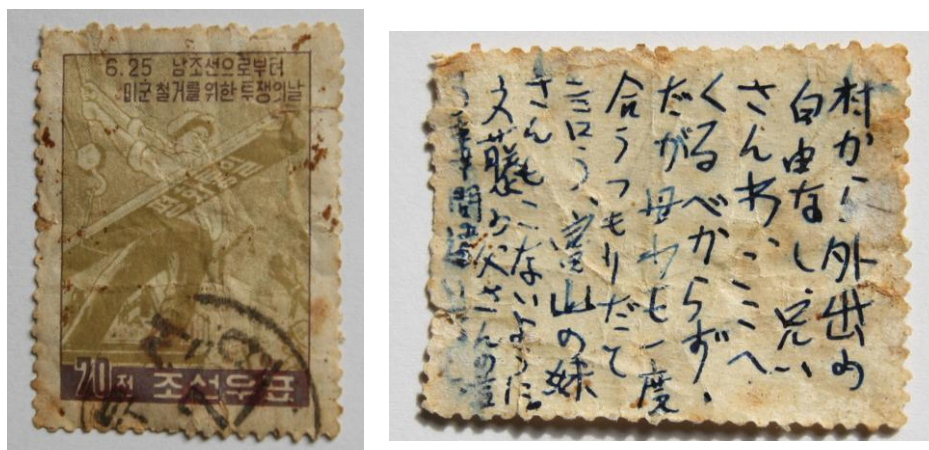 6.25 남조선으로부터
미군 철거를 위한 투쟁의날
평화통일
70전 조선우표
村から外出の
自由なし、兄い
さんわ、ここへ
くるべからず、
だが母わも一度
合うつもりだて
言う、富山の妹
さんもこないように
藤お父さんの